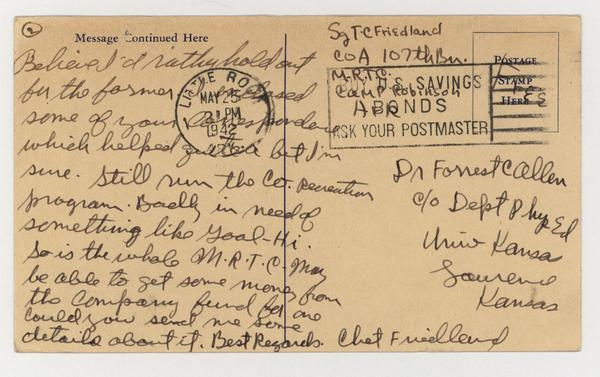 2
Message Continued Here
Believe I'd rather hold out
for the former. Enclosed
some of your correspondence
which helped quite a bit I'm
sure. Still run the Co. Recreation
program. Badly in need of
something like Goal-Hi.
So is the whole M.R.T.C. May
be able to get some money from
the Company fund for one
Could you send me some
details about it. Best Regards. Chet Friedland
Sg T C Friedland
Co A 107th Bn.
M.R.T.C.
Camp Robinson
Ark
LITTLE ROCK
MAY 25
PM
1942
U.S. SAVINGS
BONDS
ASK YOUR POSTMASTER
POSTAGE
STAMP
HERE
FREE
Dr Forrest C Allen
c/o Dept Phy Ed
Univ Kansas
Lawrence
Kansas